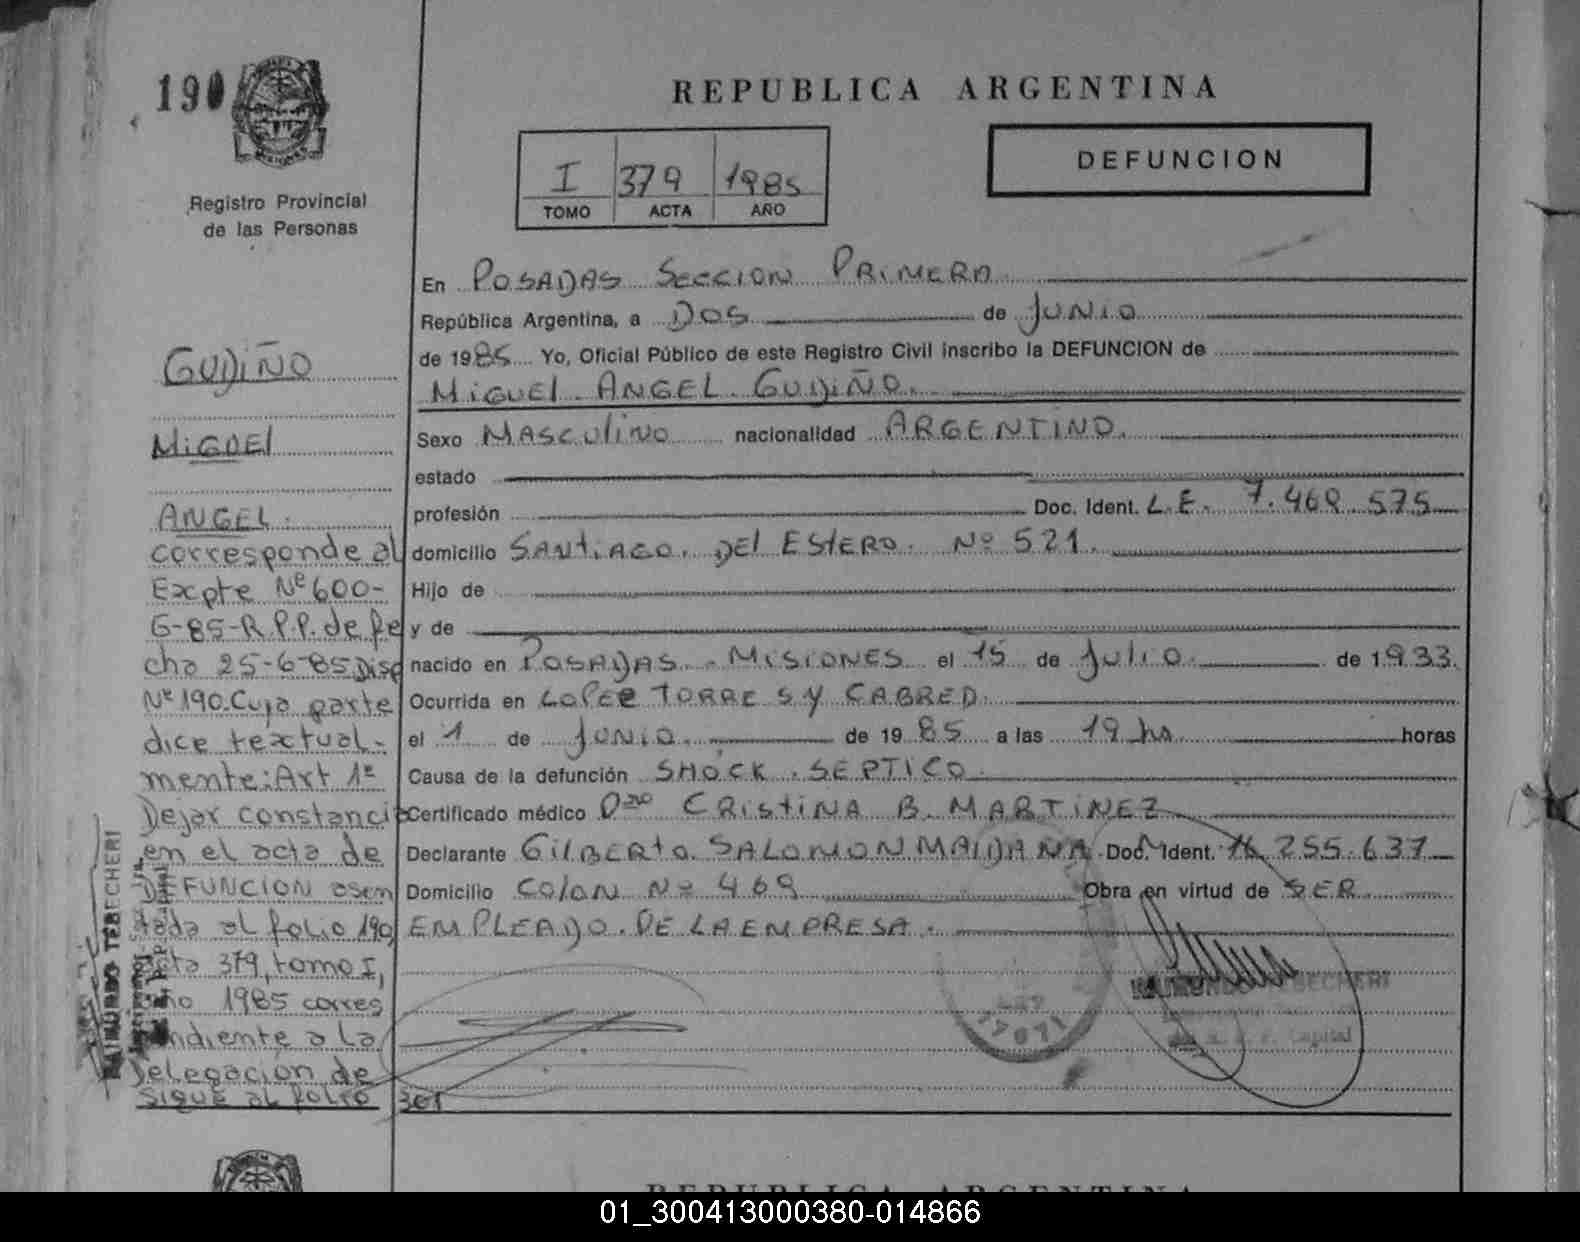 190
MISIONES
Registro Provincial
de las Personas
REPUBLICA ARGENTINA
I 379 1985
TOMO ACTA AÑO
DEFUNCION
En POSADAS SECCION PRIMERA
República Argentina, a DOS de JUNIO
de 1985 Yo, Oficial Público de este Registro Civil inscribo la DEFUNCION de
MIGUEL ANGEL GUDIÑO.
Sexo MASCULINO nacionalidad ARGENTINO.
estado
profesión Doc. Ident. L.E. 7.469.575
domicilio SANTIAGO DEL ESTERO Nº 521.
Hijo de
y de
nacido en POSADAS - MISIONES el 15 de JULIO de 1933.
Ocurrida en LOPEZ TORRES Y CABRED.
el 1 de JUNIO de 1985 a las 19 hs horas
Causa de la defunción SHOCK SEPTICO
Certificado médico Dra CRISTINA B. MARTINEZ
Declarante GILBERTO SALOMON MAIDANA Doc. Ident. 16.255.637
Domicilio COLON Nº 469 Obra en virtud de SER
EMPLEADO DE LA EMPRESA.
GUDIÑO
MIGUEL
ANGEL.
corresponde al
Expte Nº 600-
G-85-R.P.P. de fe
cha 25-6-85 Disp
Nº 190. Cuya parte
dice textual-
mente: Art 1º
Dejar constancia
en el acta de
DEFUNCION asen
tada al folio 190,
acta 379, tomo I,
año 1985 corres
pondiente a la
Delegación de
SIGUE AL FOLIO 301
RAIMUNDO TEBECHERI
RAIMUNDO TEBECHERI
Capital
REPUBLICA ARGENTINA
01_300413000380-014866